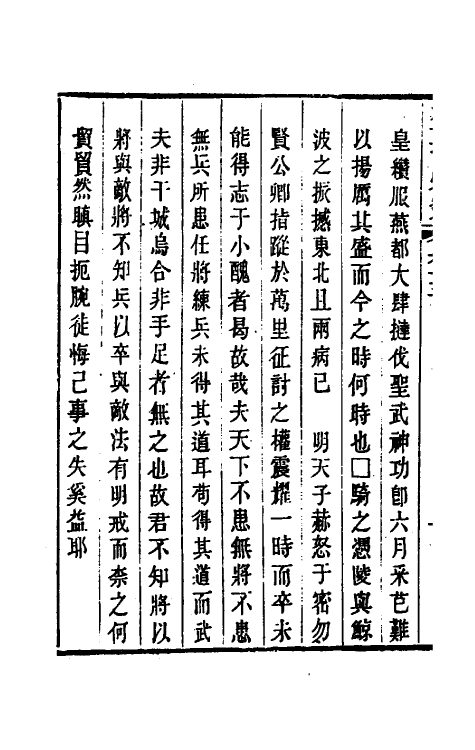 皇纘服燕都大肆撻伐聖武神功卽六月采芑難
以揚厲其盛而今之時何時也□騎之憑陵與鯨
波之振撼東北且兩病已　明天子赫怒于密勿
賢公卿指蹤於萬里征討之權震燿一時而卒未
能得志于小醜者曷故哉夫天下不患無將不患
無兵所患任將練兵未得其道耳苟得其道而武
夫非干城烏合非手足者無之也故君不知將以
將與敵將不知兵以卒與敵法有明戒而柰之何
貿貿然瞋目扼腕徒悔已事之失奚益耶